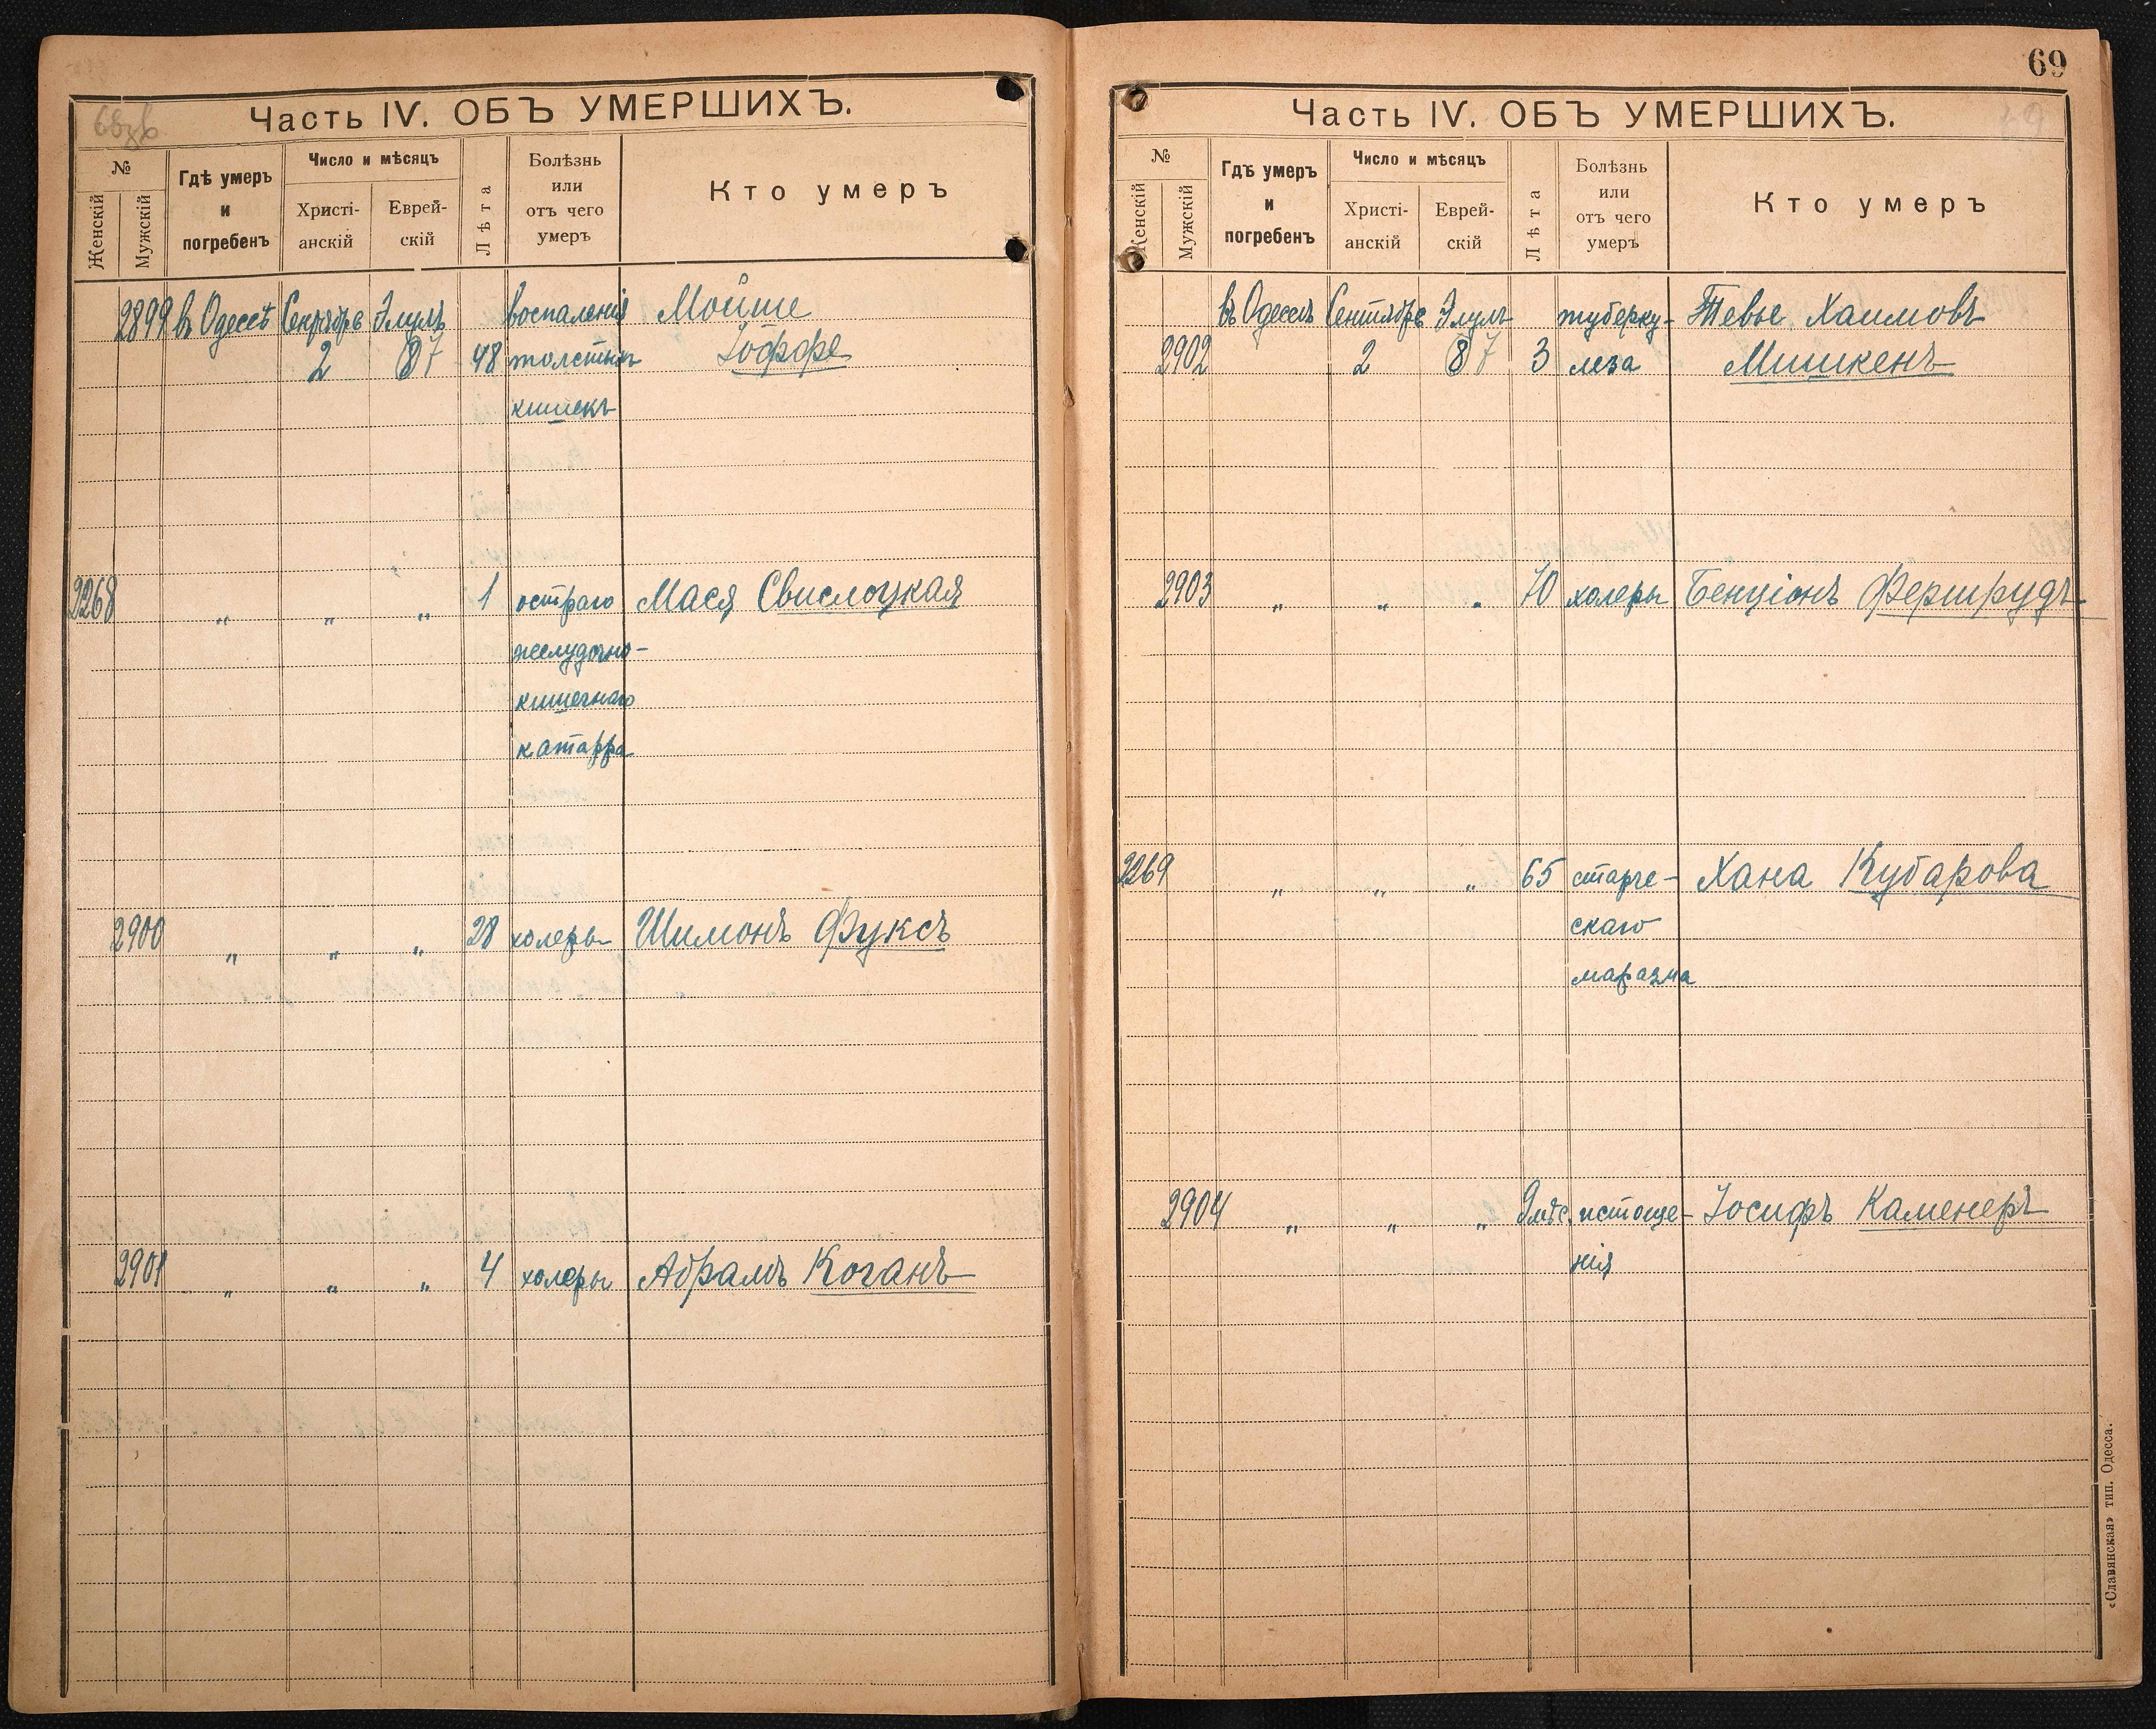 68зв
Часть IV. ОБЪ УМЕРШИХЪ.
№
Женскій
Мужскій
Гдѣ умеръ
и
погребенъ
Число и мѣсяцъ
Христі-
анскій
Еврей-
скій
Лѣта
Болѣзнь
или
отъ чего
умеръ
Кто умеръ
2899 въ Одессѣ Сентябрь Элулъ воспаленія Мойше
2 8 7 48 толстыхъ Іоффе
кишекъ
2268 „ „ „ 1 остраго Мася Свислоцкая
желудочно-
кишечнаго
катарра
2900 „ „ „ 28 холеры Шимонъ Фуксъ
2901 „ „ „ 4 холеры Абрамъ Коганъ
69
Часть IV. ОБЪ УМЕРШИХЪ.
№
Женскій
Мужскій
Гдѣ умеръ
и
погребенъ
Число и мѣсяцъ
Христі-
анскій
Еврей-
скій
Лѣта
Болѣзнь
или
отъ чего
умеръ
Кто умеръ
въ Одессѣ Сентябрь Элулъ туберку- Тевье Хаимовъ
2902 2 8 7 3 леза Мишкенъ
2903 „ „ „ 70 холеры Бенціонъ Ферштрудъ
2269 „ „ „ 65 старче- Хана Кубарова
скаго
маразма
2904 „ „ „ 9 мѣс. истоще- Іосифъ Каменеръ
нія
«Славянская» тип. Одесса.